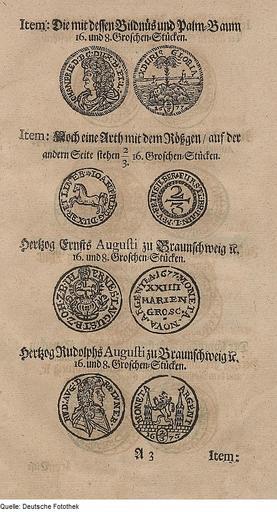 Item: Die mit dessen Bildnüs und Palm-Baum
16. und 8. Groschen-Stücken.
Item: Noch eine Arth mit dem Rößgen / auf der
andern Seite stehen 2/3. 16. Groschen-Stücken.
2/3
Hertzog Ernsts Augusti zu Braunschweig ꝛc.
16. und 8. Groschen-Stücken.
XXIIII
MARIEN
GROSC
Hertzog Rudolphs Augusti zu Braunschweig ꝛc.
16. und 8. Groschen-Stücken.
A 3 Item:
Quelle: Deutsche Fotothek